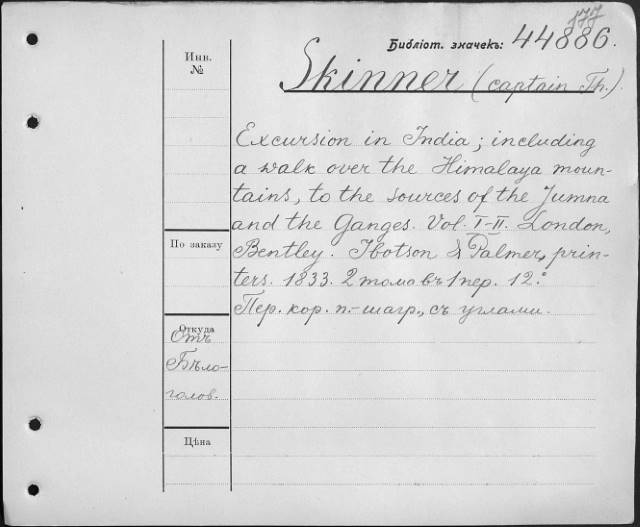 177
Библіот. значекъ: 44886.
Инв.
№
Skinner (captain Th.).
Excursion in India; including
a walk over the Himalaya moun-
tains, to the sources of the Jumna
and the Ganges. Vol. I-II. London,
По заказу
Bentley. Ibotson & Palmer, prin-
ters. 1833. 2 тома въ 1 пер. 12.°
Пер. кор. п.-шагр., съ углами.
Откуда
Отъ
Бѣло-
голов.
Цѣна